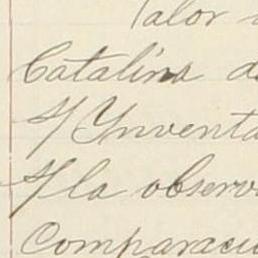 Valor
Catalina d
S/Inventa
S/la observ
Comparaci